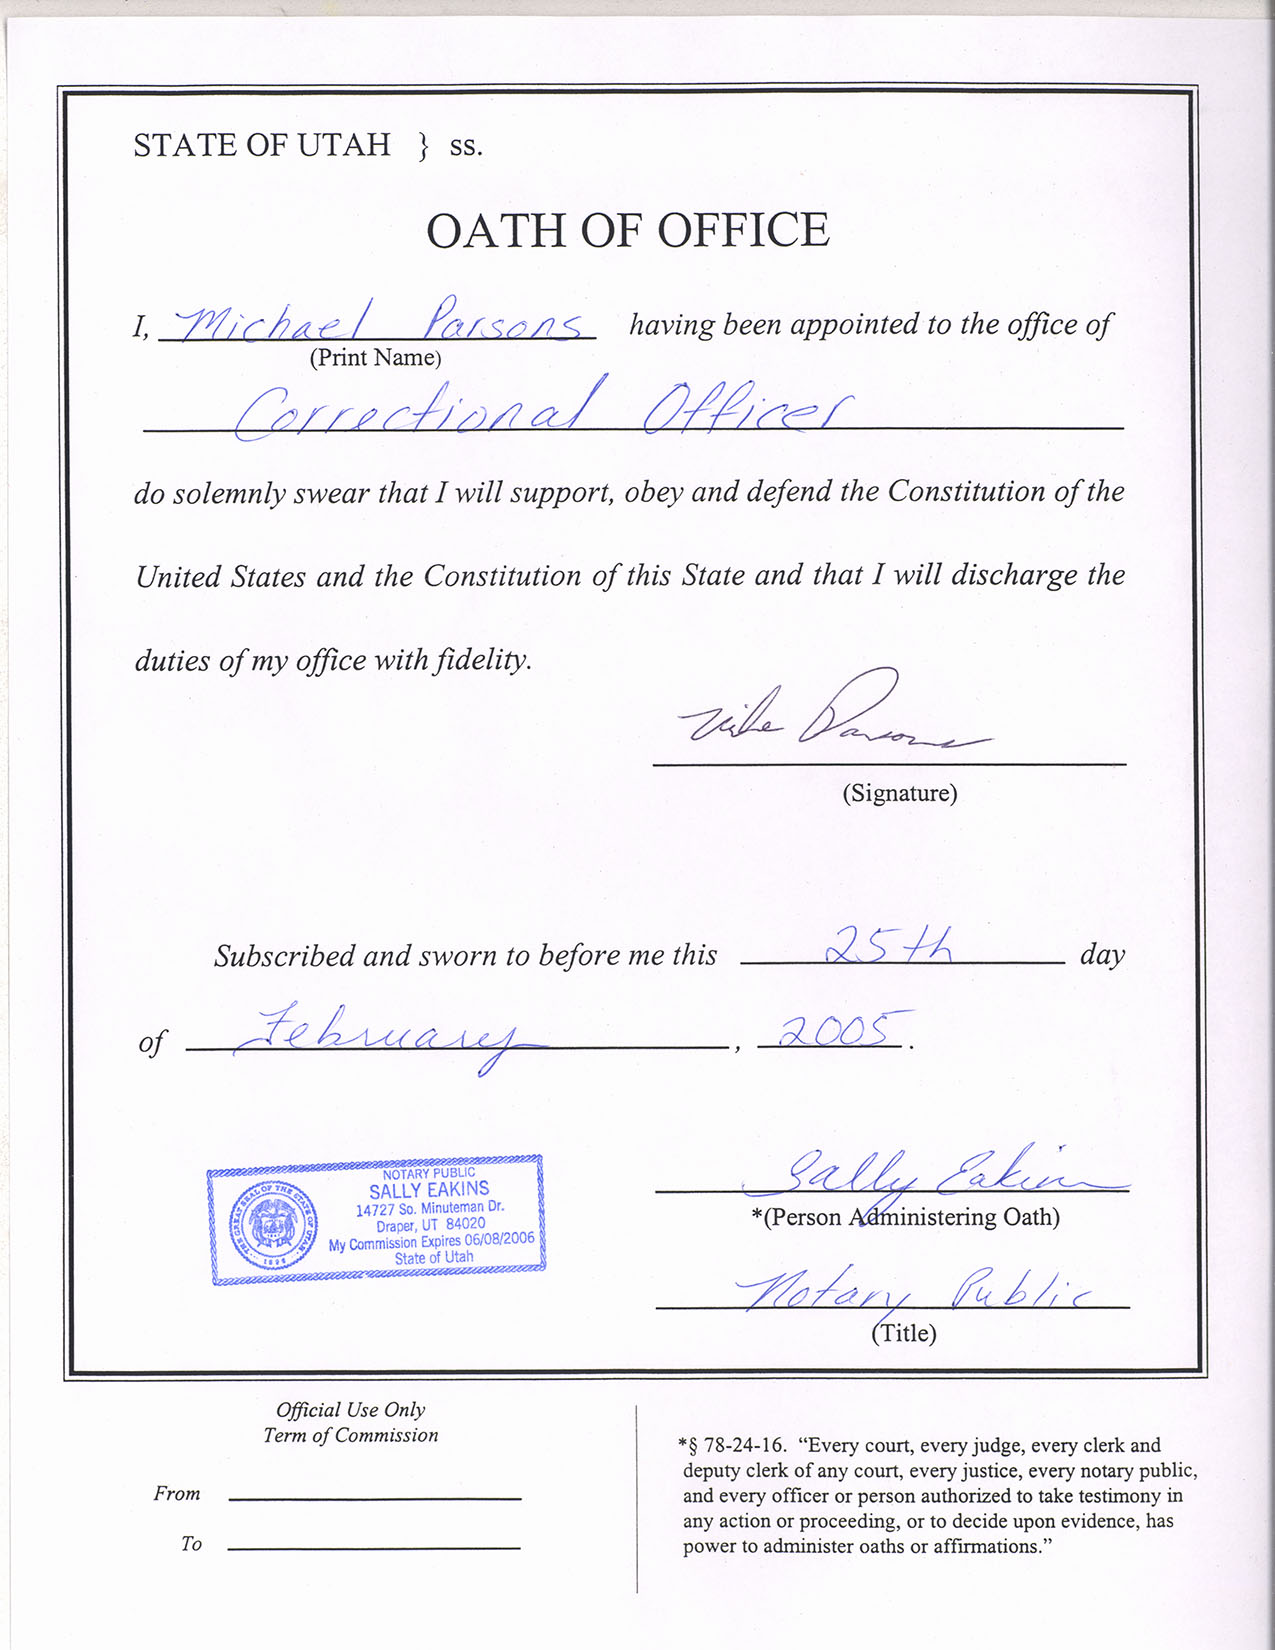 STATE OF UTAH } ss.
OATH OF OFFICE
I, Michael Parsons having been appointed to the office of
(Print Name)
Correctional Officer
do solemnly swear that I will support, obey and defend the Constitution of the
United States and the Constitution of this State and that I will discharge the
duties of my office with fidelity.
Mike Parsons
(Signature)
Subscribed and sworn to before me this 25th day
of February, 2005.
NOTARY PUBLIC
SALLY EAKINS
14727 So. Minuteman Dr.
Draper, UT 84020
My Commission Expires 06/08/2006
State of Utah
THE GREAT SEAL OF THE STATE OF UTAH
1896
Sally Eakins
*(Person Administering Oath)
Notary Public
(Title)
Official Use Only
Term of Commission
From
To
*§ 78-24-16. “Every court, every judge, every clerk and
deputy clerk of any court, every justice, every notary public,
and every officer or person authorized to take testimony in
any action or proceeding, or to decide upon evidence, has
power to administer oaths or affirmations.”